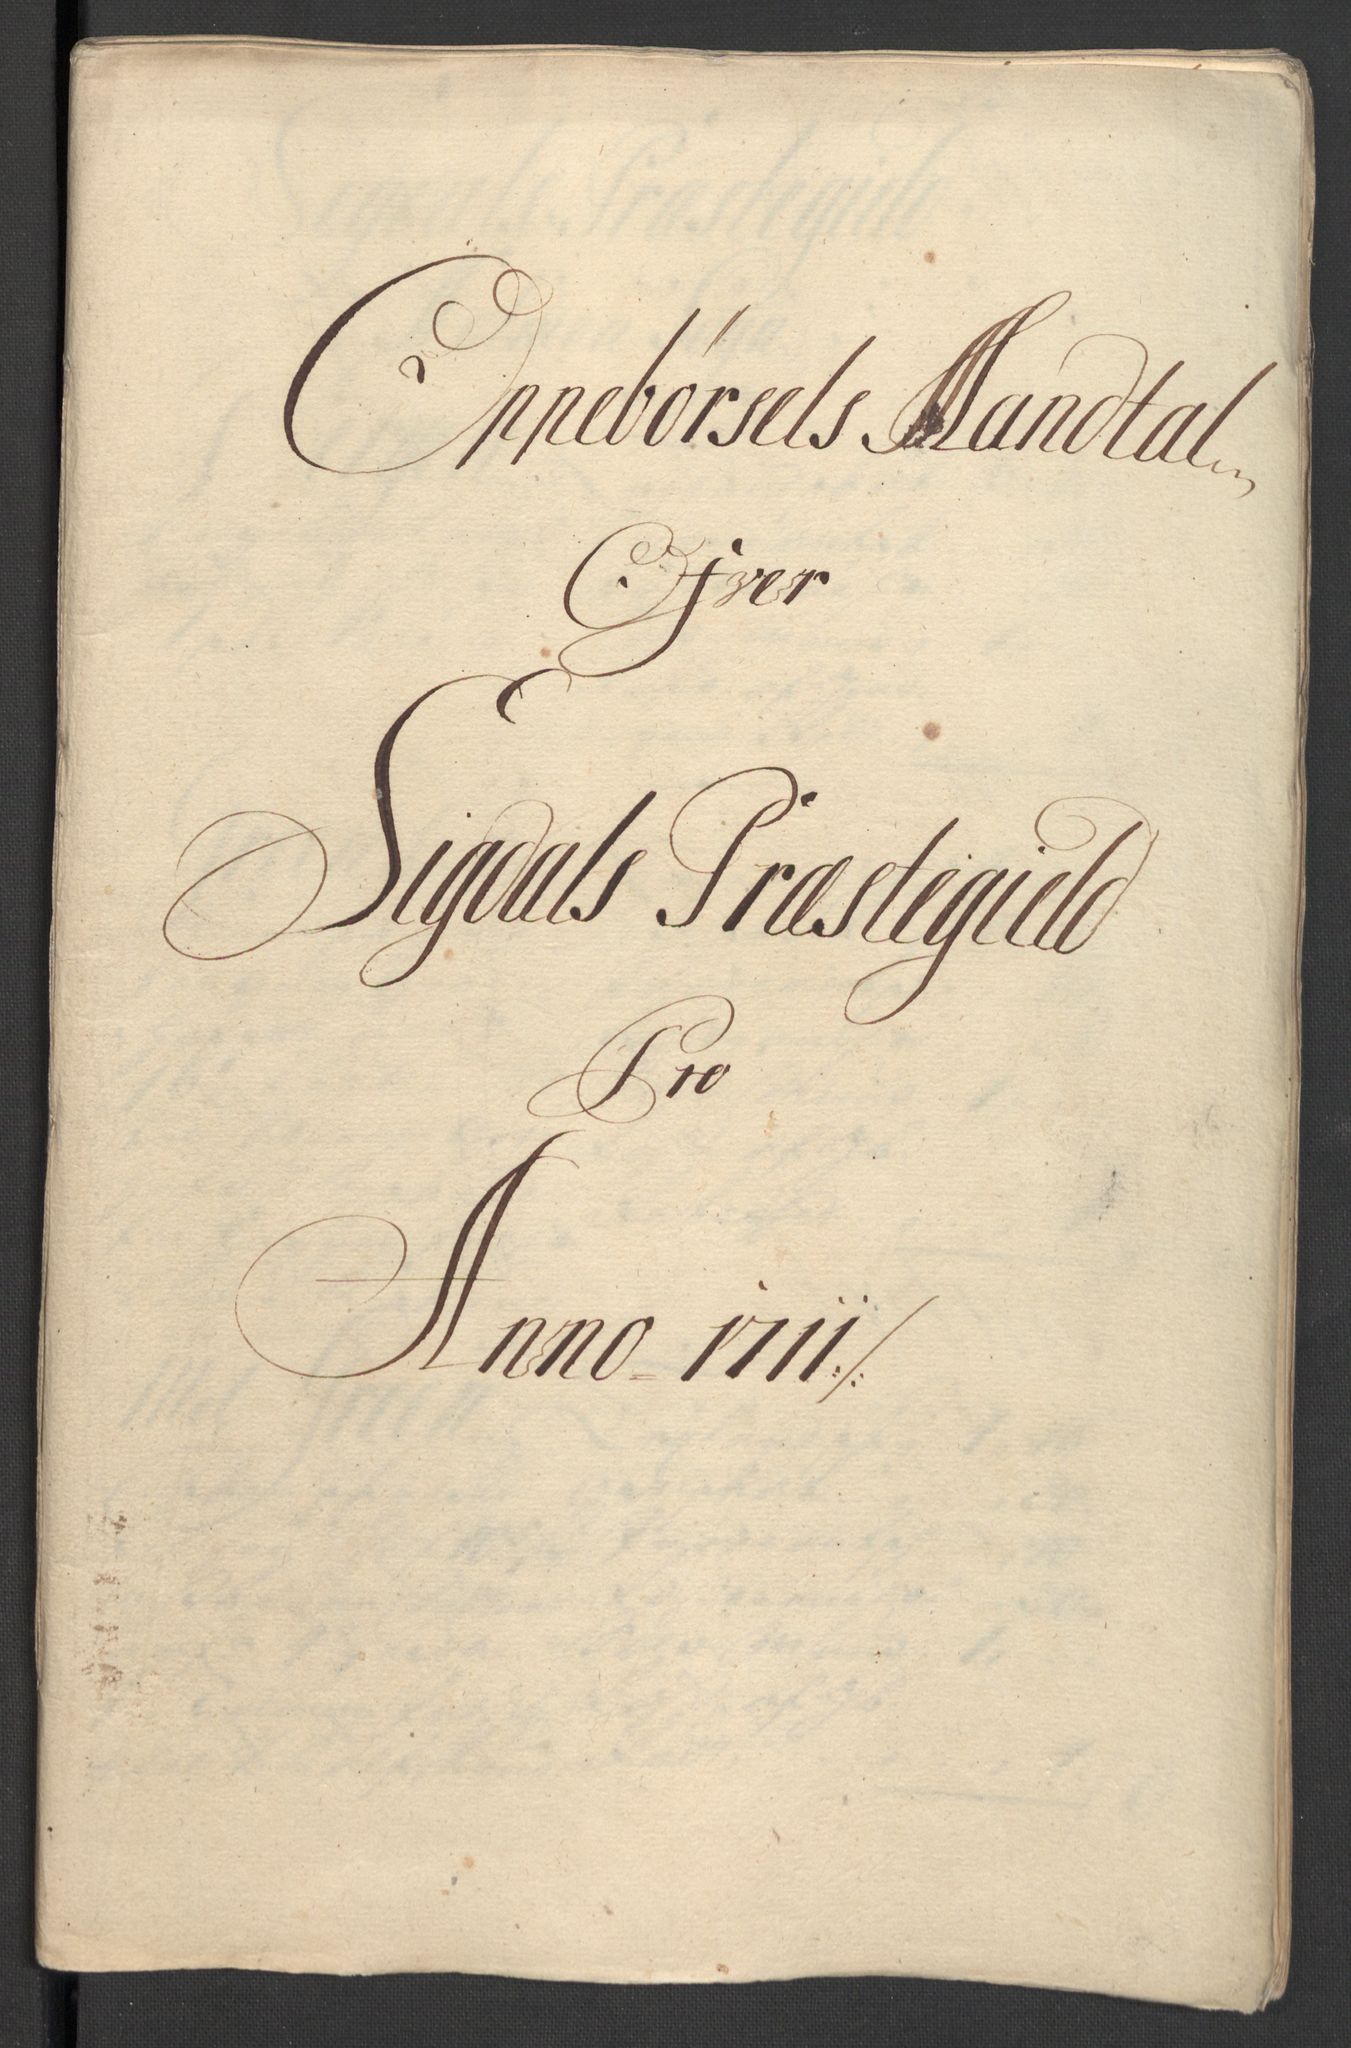 Oppebørsels Mandtal
Ofver
Sigdals Præstegield
Pro
Anno 1711./.